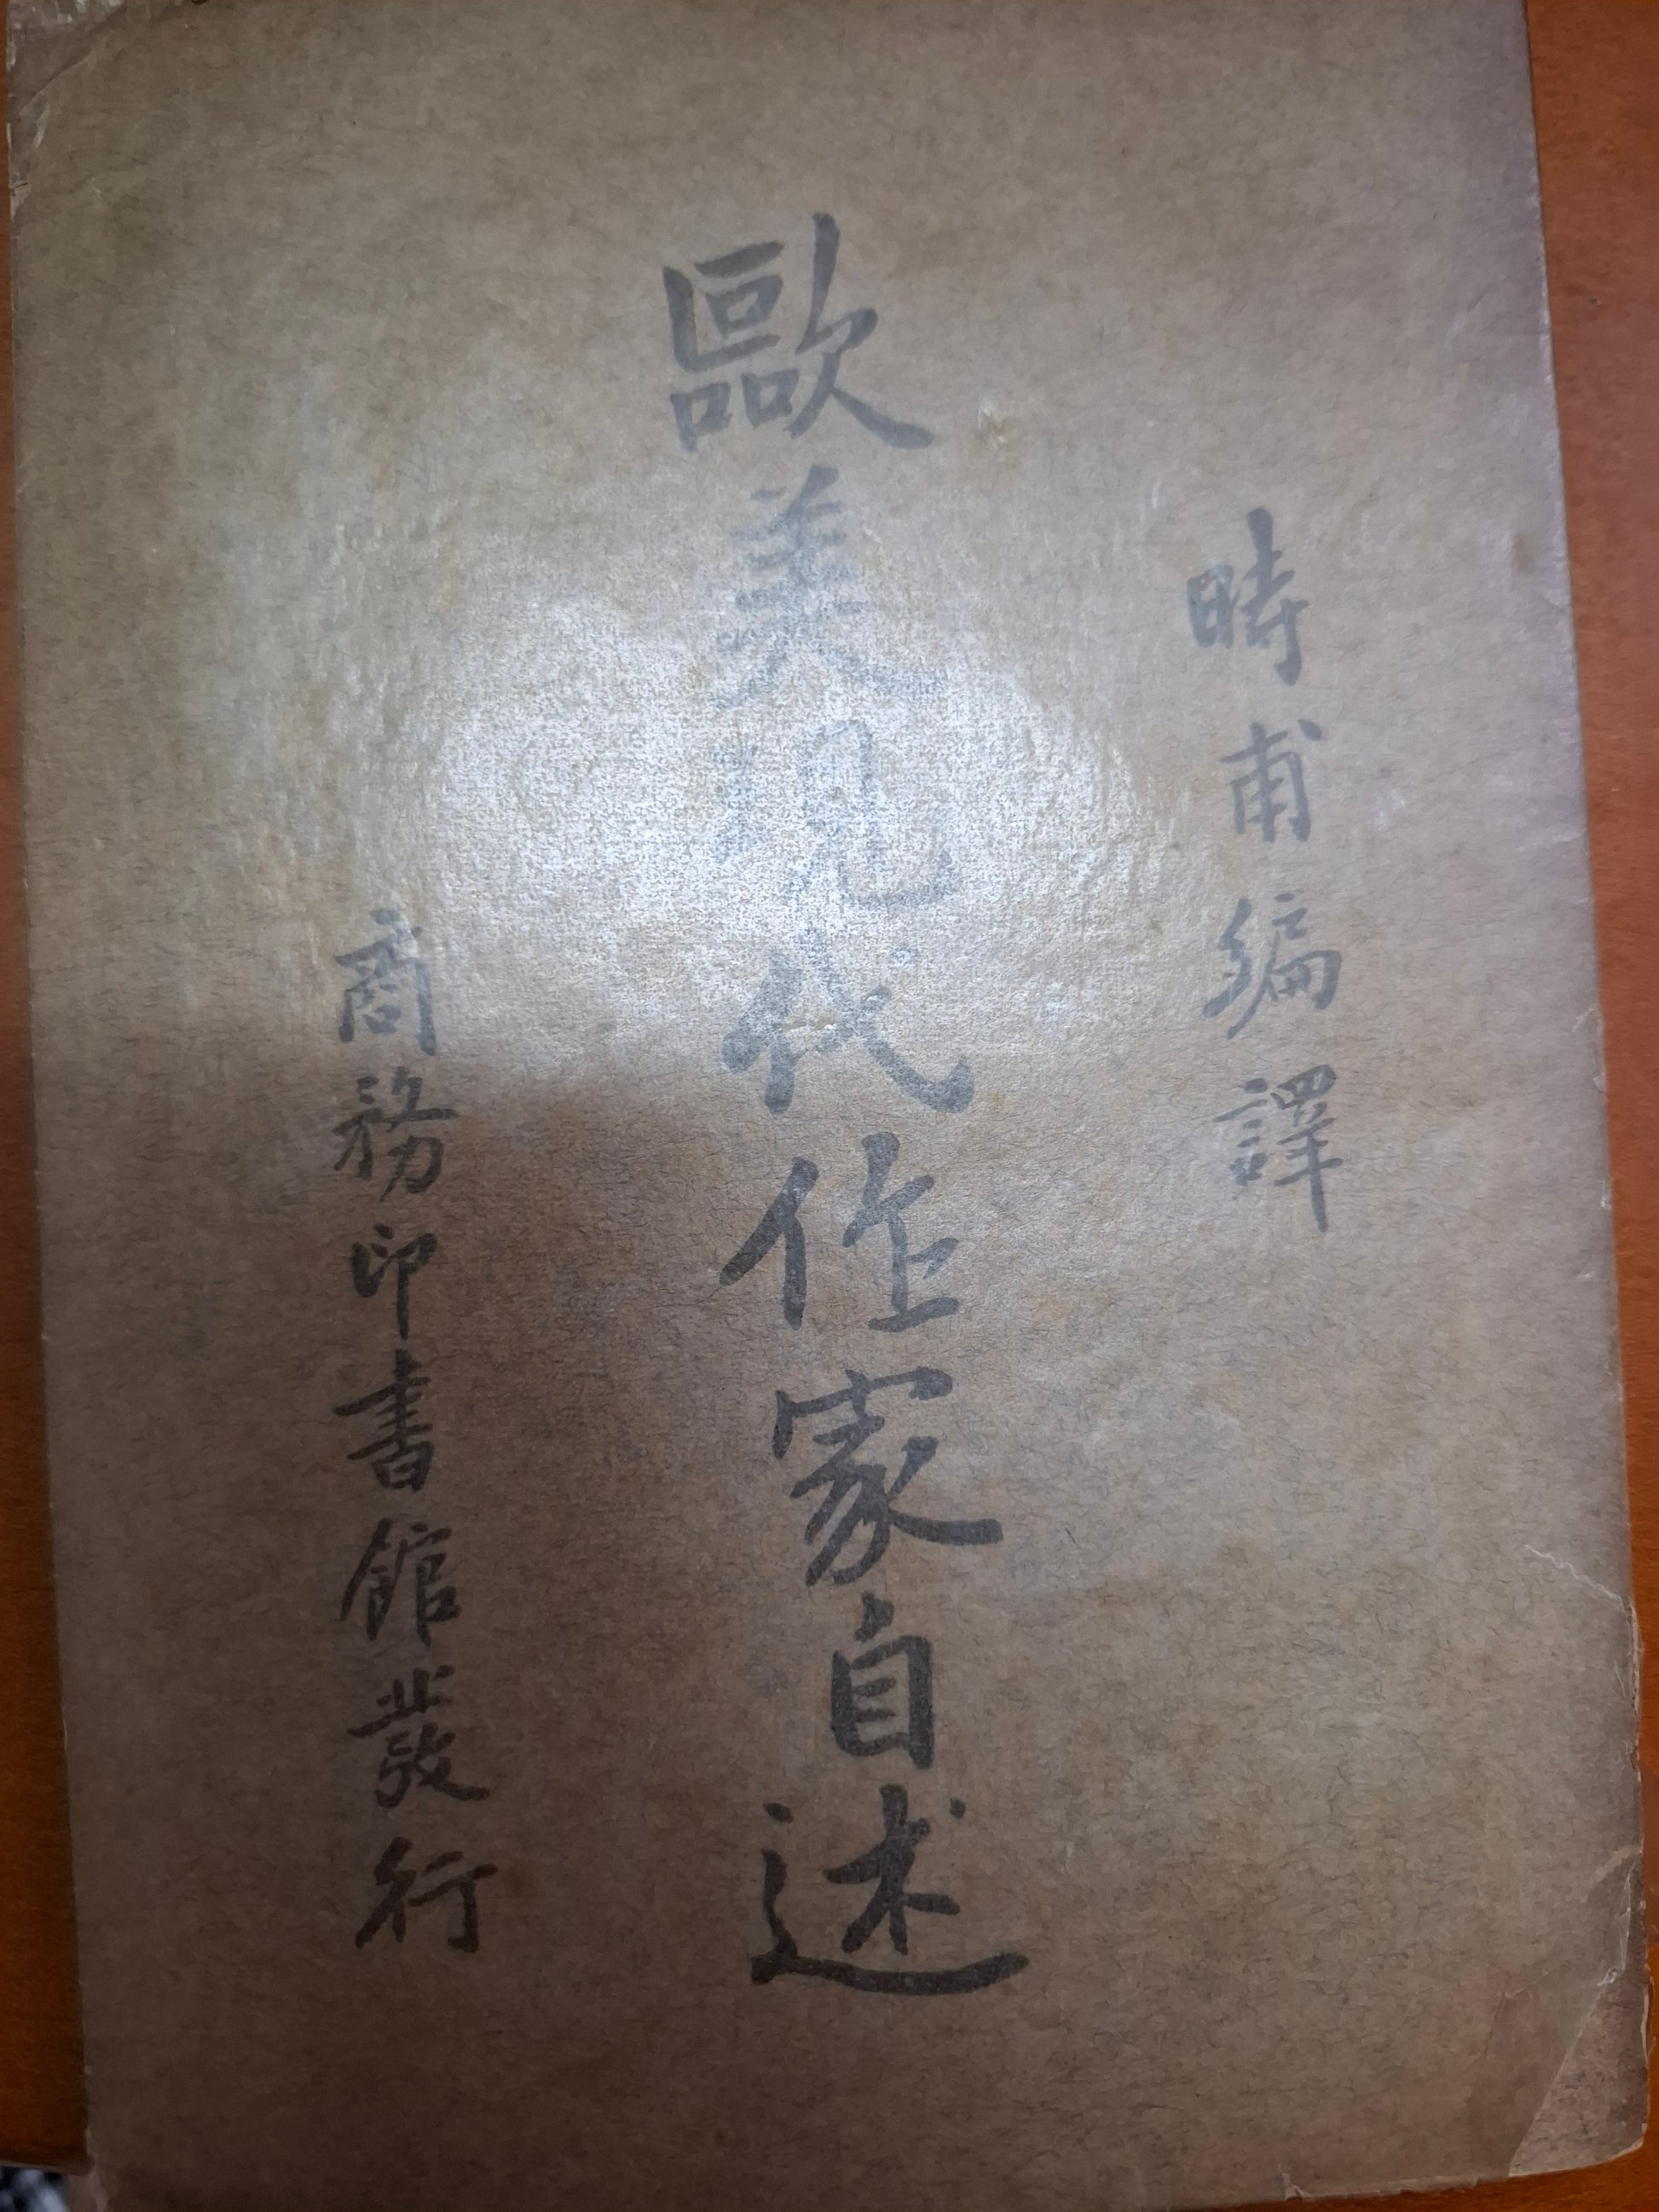 時甫編譯
歐美現代作家自述
商務印書館發行